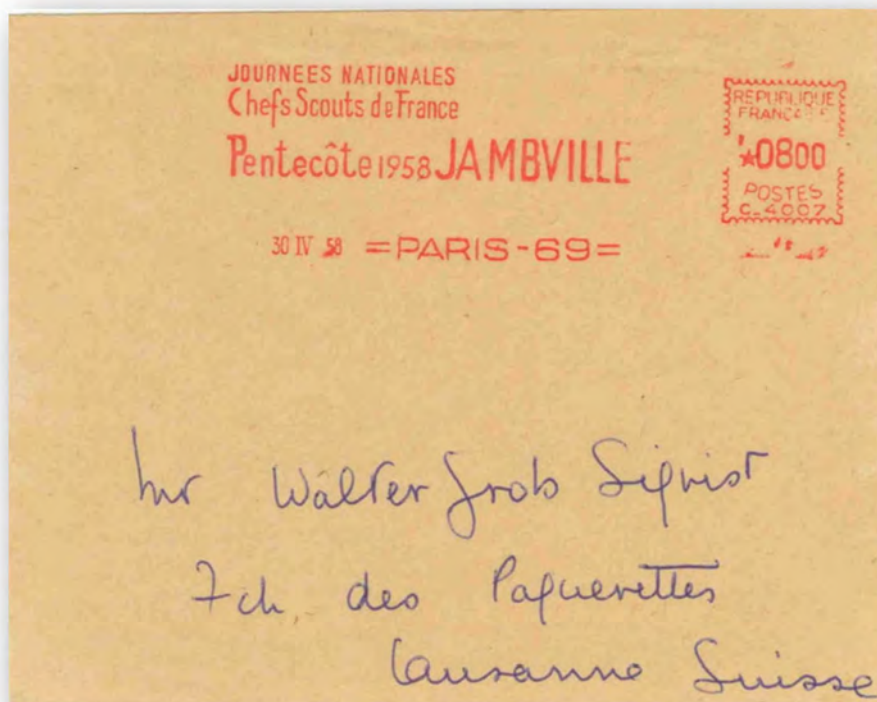 JOURNEES NATIONALES
Chefs Scouts de France
Pentecôte 1958 JAMBVILLE
REPUBLIQUE
FRANÇAISE
*0800
POSTES
C.4007
30 IV 58 =PARIS-69=
Mr Walter Grob Sigrist
7 ch des Paquerettes
Lausanne Suisse